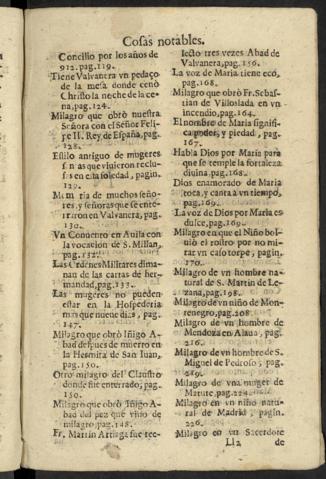 Cosas notables.
Concilio por los años de
912. pag. 119.
Tiene Valvanera vn pedaço
de la mesa donde cenò
Christo la neche de la ce-
na, pag. 124.
Milagro que obrò nuestra
Señora con el Señor Feli-
pe II. Rey de España, pag.
128.
Estilo antiguo de mugeres
sin as que viuieron reclu-
sas en esta soledad, pagin.
129.
Mem ria de muchos seño-
res, y señoras que se ente-
rraron en Valvanera, pag.
130.
Vn Conuento en Auila con
la vocacion de S. Millan,
pag. 132.
Las Ordenes Militares dima-
nan de las cartas de her-
mandad, pag. 133.
Las mugeres no pueden
estar en la Hospederia
mas que nueue dias, pag.
147.
Milagro que obrò Iñigo A-
bad despues de muerto en
la Hermita de San Iuan,
pag. 150.
Otro milagro del Claustro
donde fue enterrado, pag.
150.
Milagro que obrò Iñigo A-
bad del pez que vino de
milagro, pag. 148.
Fr. Martin Arriaga fue ree-
lecto tres vezes Abad de
Valvanera, pag. 156.
La voz de Maria tiene eco,
pag. 168.
Milagro que obrò Fr. Sebas-
tian de Villoslada en vn
incendio, pag. 164.
El nombre de Maria signifi-
ca poder, y piedad, pag.
167.
Habla Dios por Maria para
que se temple la fortaleza
diuina, pag. 168.
Dios enamorado de Maria
toca, y canta à vn tiempo,
pag. 169.
La voz de Dios por Maria es
dulce, pag. 169.
Milagro en que el Niño bol-
uiò el rostro por no mi-
rar vn caso torpe, pagin.
170.
Milagro de vn hombre na-
tural de S. Martin de Le-
zana, pag. 198.
Milagro de vn niño de Mon-
renegro, pag. 208.
Milagro de vn hombre de
Mendoza en Alaua, pag.
216.
Milagro de vn hombre de S.
Miguel de Pedroso, pag.
219.
Milagro de vna muger de
Matute, pag. 224.
Milagro en vn niño natu-
ral de Madrid, pagin.
226.
Milagro en vn Sacerdote
Ll2 de